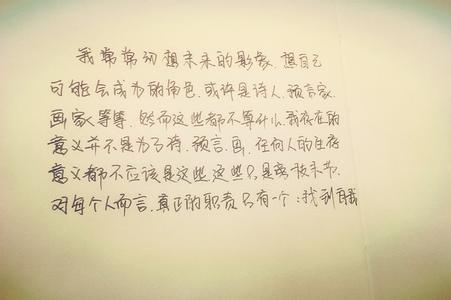 我常常幻想未来的影象.想自己
可能会成为的角色.或许是诗人.预言家.
画家等等.然而这些都不算什么.我存在的
意义并不是为了诗.预言.画.任何人的生存
意义都不应该是这些.这些只是旁枝末节.
对每个人而言.真正的职责只有一个:找到自我